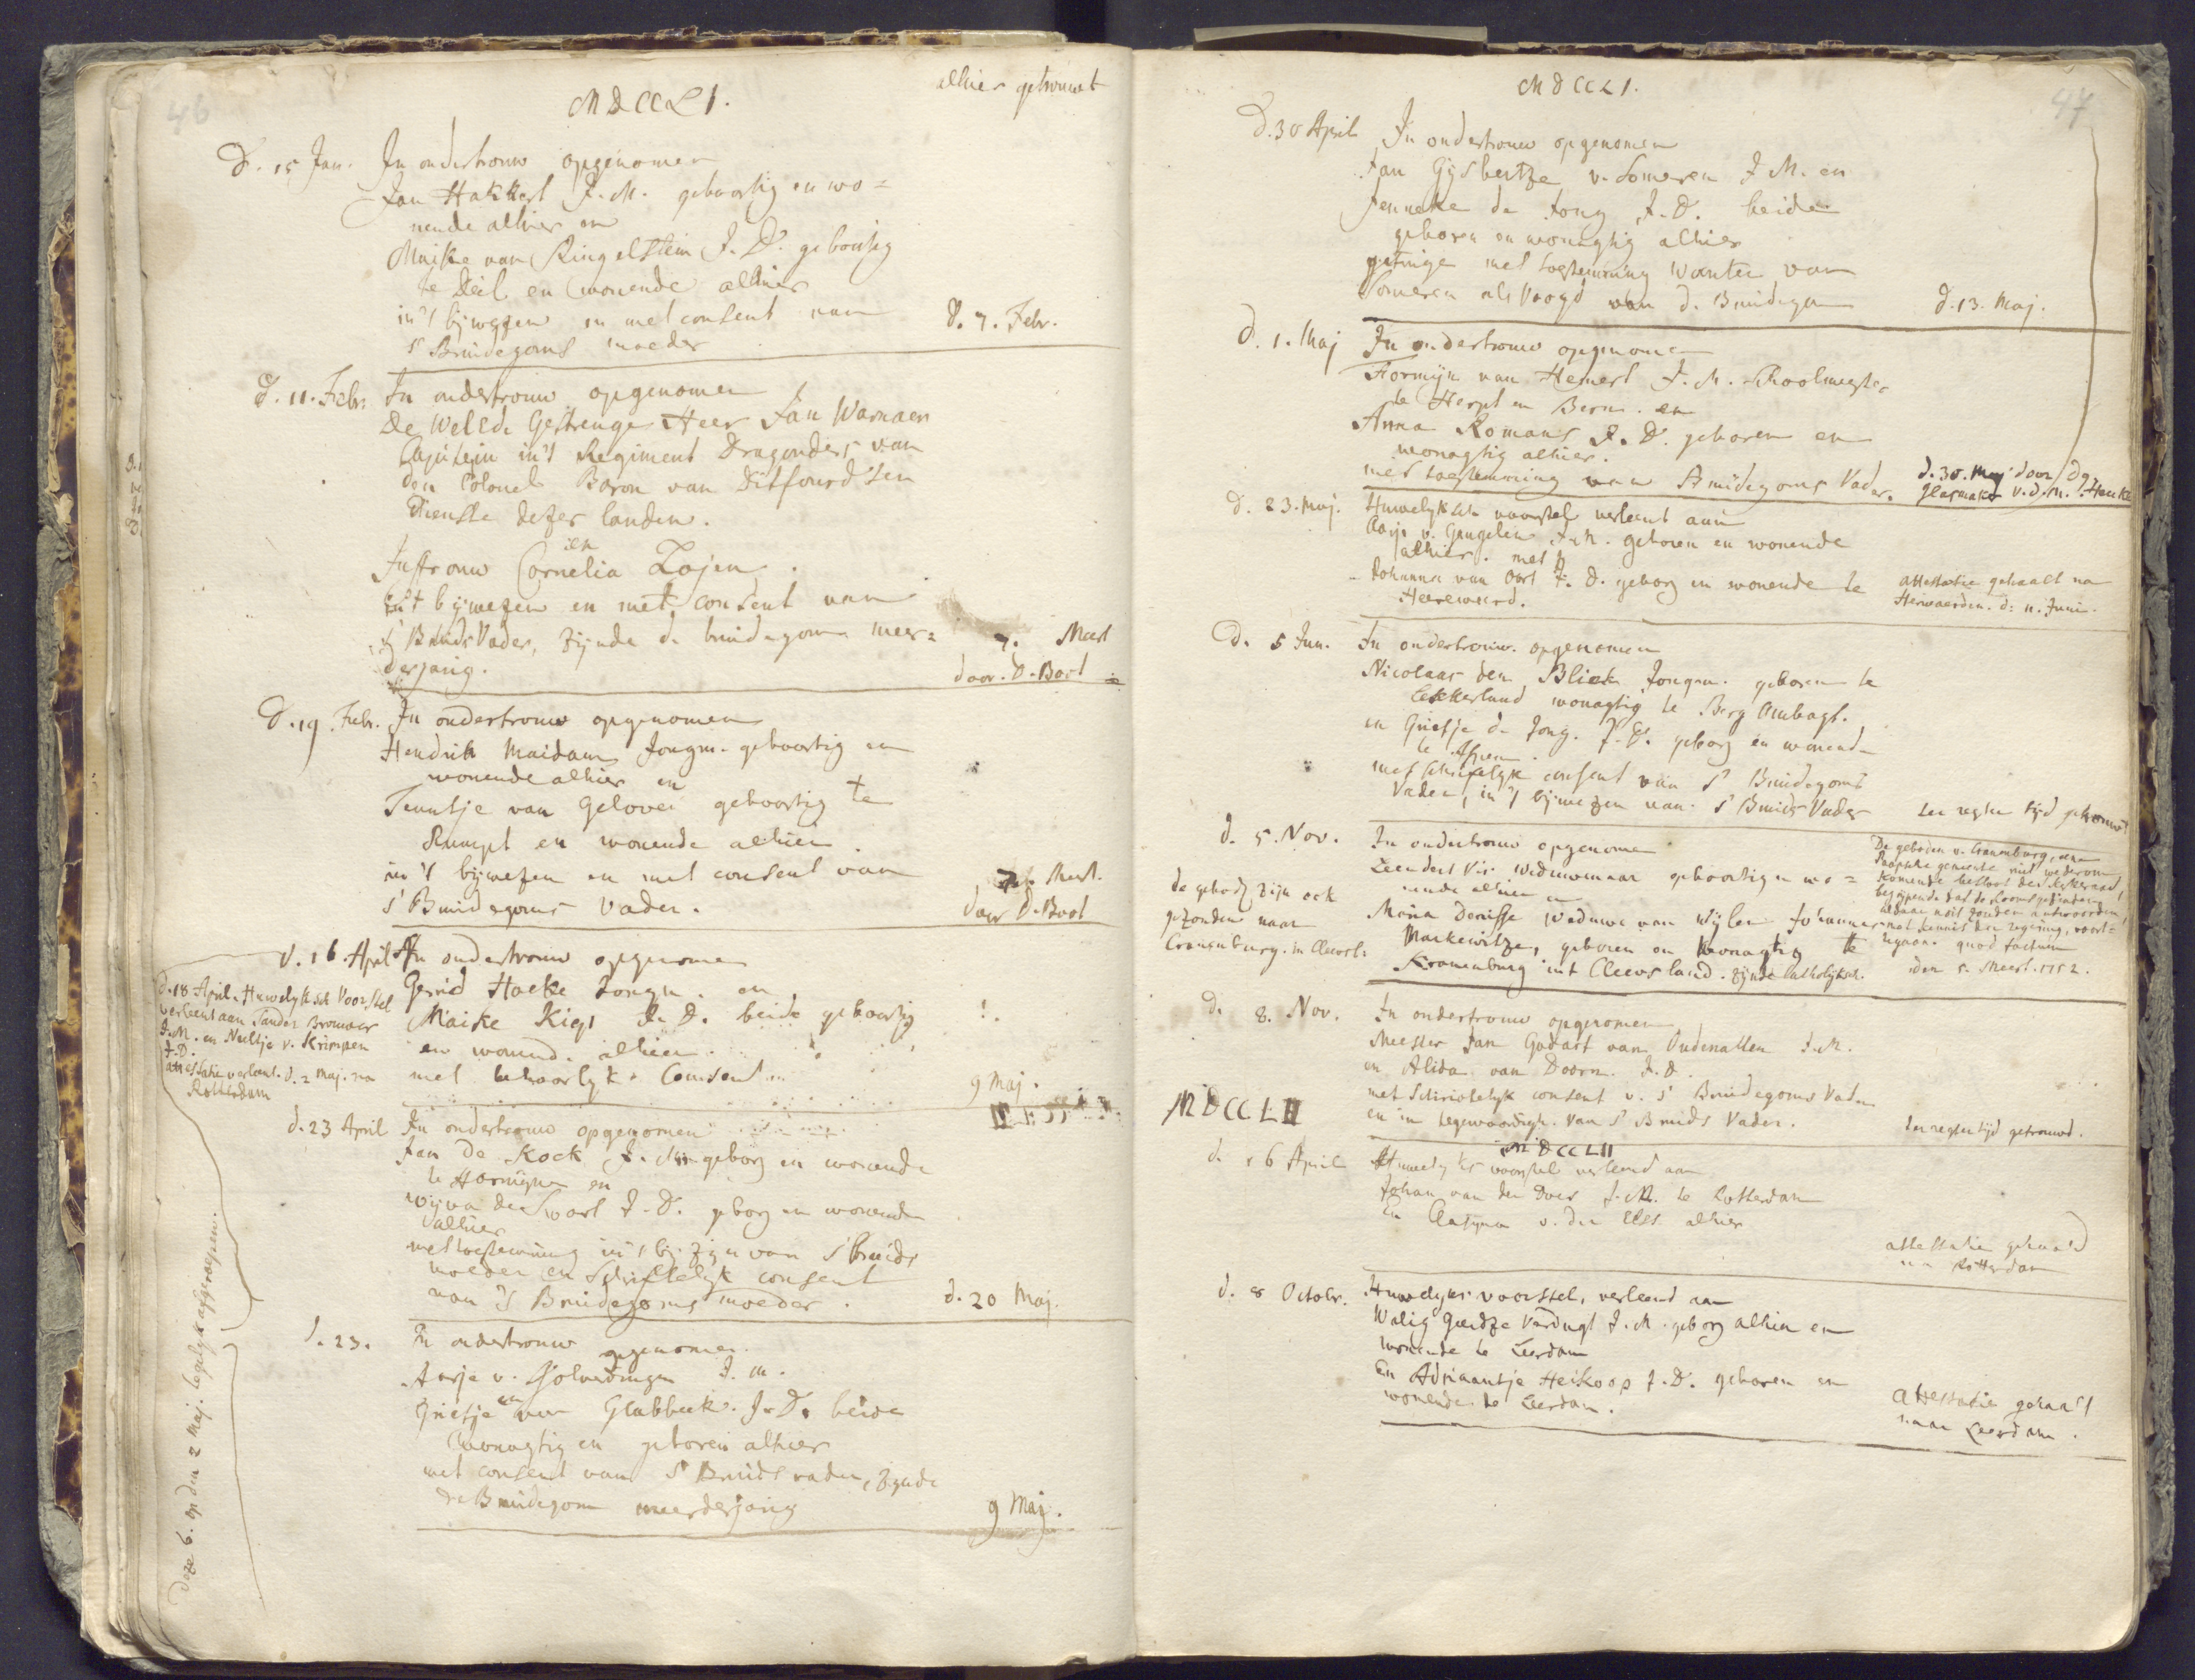 46
MDCCLI.
alhier getrouwt
D. 15 Jan. In ondertrouw opgenomen
Jan Hakkert J. M. geboortig en wo=
nende alhier en
Maike van Ringelstein J. D. geboortig
te Deil en wonende alhier
in't bijwezen en met consent van
s' Bruidegoms moeder
D. 7. Febr.
D. 11. Febr. In ondertrouw opgenomen
De WelEde Gestrenge Heer Jan Warnaer
Capitein in't Regiment Dragonders van
den Colonel Baron van Ditfourd ten
Dienste dezer landen.
en
Juffrouw Cornelia Zojen
in't bijwezen en met consent van
s' Bruids Vader, zijnde de bruidegom meer=
derjarig.
7. Meert
door D. Boot
D. 19. Febr. In ondertrouw opgenomen
Hendrik Maidam Jongm. geboortig en
wonende alhier en
Teuntje van Gelover geboortig te
Rumpt en wonende alhier
in 't bijwezen en met consent van
s' Bruidegoms Vader.
7. Meert.
door D. Boot
D. 16. April In ondertrouw opgenomen
Gerrid Hacke Jongm. en
Maike Kiepl J. D. beide geboortig
en wonende alhier.
met behoorlyk Consent
9 Maj.
d. 18 April. Huwelyksch Voorstel
verleent aan Sander Brouwer
J. M. en Neeltje v. Krimpen
J. D.
attestatie verleent. d. 2 Maj. na
Rotterdam
d. 23 April In ondertrouw opgenomen
Jan de Kock J. M. geborg en wonende
te Hornijnen en
Wijva de Swart J. D. geborg en wonende
alhier
met toestemming in't bij zijn van s' bruids
moeder en Schriftelyk consent
van 's Bruidegoms moeder.
d. 20 Maj.
d. 23. In ondertrouw opgenomen
Aarje v. Golverdingen J. M.
en
Grietje van Glabbeek. J. D. beide
woonagtig en geboren alhier
met consent van s' Bruids vader, zijnde
de Bruidegom meerderjarig
9 Maj.
Deze 6. op den 2 Maj. tegelyk afgeroepen.
47
MDCCLI.
D. 30 April In ondertrouw opgenomen
Jan Gijsbertze v. Someren J. M. en
Jenneke de Jong J. D. beide
geboren en woonagtig alhier
met toestemming Wouter van
Someren als Voogd van d. Bruidegom
d. 13. Maj.
D. 1. Maj In ondertrouw opgenomen
Formijn van Hemert J. M. Schoolmeester
te Herpt en Bern. en
Anna Romans J. D. geboren en
wonagtig alhier.
met toestemming van Bruidegoms Vader.
d. 30. Maj door Ds
Glasmaker v. d. m.
d. 23. Maj. Huwelyksch voorstel verleent aan
Aarje v. Gangelen J. M. geboren en wonende
alhier. met
Johanna van Oort J. D. geborg en wonende te
Heerewaard.
attestatie gehaalt na
Herwaerden. d: 11. Juni.
D. 5 Jun. In ondertrouw opgenomen
Nicolaas den Bliek Jongm. geboren te
Lekkerland wonagtig te Berg Ambagt.
en Grietje de Jong. J. D. geborg en wonende
te Asperen.
met schriftelyk consent van s' Bruidegoms
Vader, in 't bijwezen van s' Bruids Vader
ter regter tijd getrouwt
d. 5. Nov. In ondertrouw opgenomen
Leendert Vis Weduwenaar geboortig en wo=
nende alhier en
Maria Denisse Weduwe van Wijlen Johannes
Markewitze, geboren en woonagtig te
Kranenburg int Cleevsland. zijnde Catholijk.
de gebodz zijn ock
gezonden naar
Cranenburg. in Cleevsl.
De geboden v. Cranenburg, eene
Paapsche gemeente niet wederom
komende besloot de Kerkeraad,
begrypende dat de Roomsgezinden
aldaar noit zouden antwoorden,
met kennis der regering, voort=
tegaan. quod factum
den 5. Meert. 1752.
d. 8. Nov. In ondertrouw opgenomen
Meester Jan Godart van Oudenallen J. M.
en Alida van Doorn. J. D.
met Schriftelyk consent v. s' Bruidegoms Vader
en in tegenwoordigh. van s' Bruids Vader.
ter regter tijd getrouwd.
MDCCLII
MDCCLII
d. 16 April Huwelyks voorstel verleend aan
Johan van der Does J. M. te Rotterdam
En Clasyna v. der Elst alhier
attestatie gehaald
na Rotterdam
d. 8 Octobr. Huwelyks voorstel, verleend aan
Walig Goerdze Verdugt J. M. geborg alhier en
wonende te Leerdam
En Adriaantje Heikoop J. D. geboren en
wonende te Leerdam.
attestatie gehaalt
naar Leerdam.